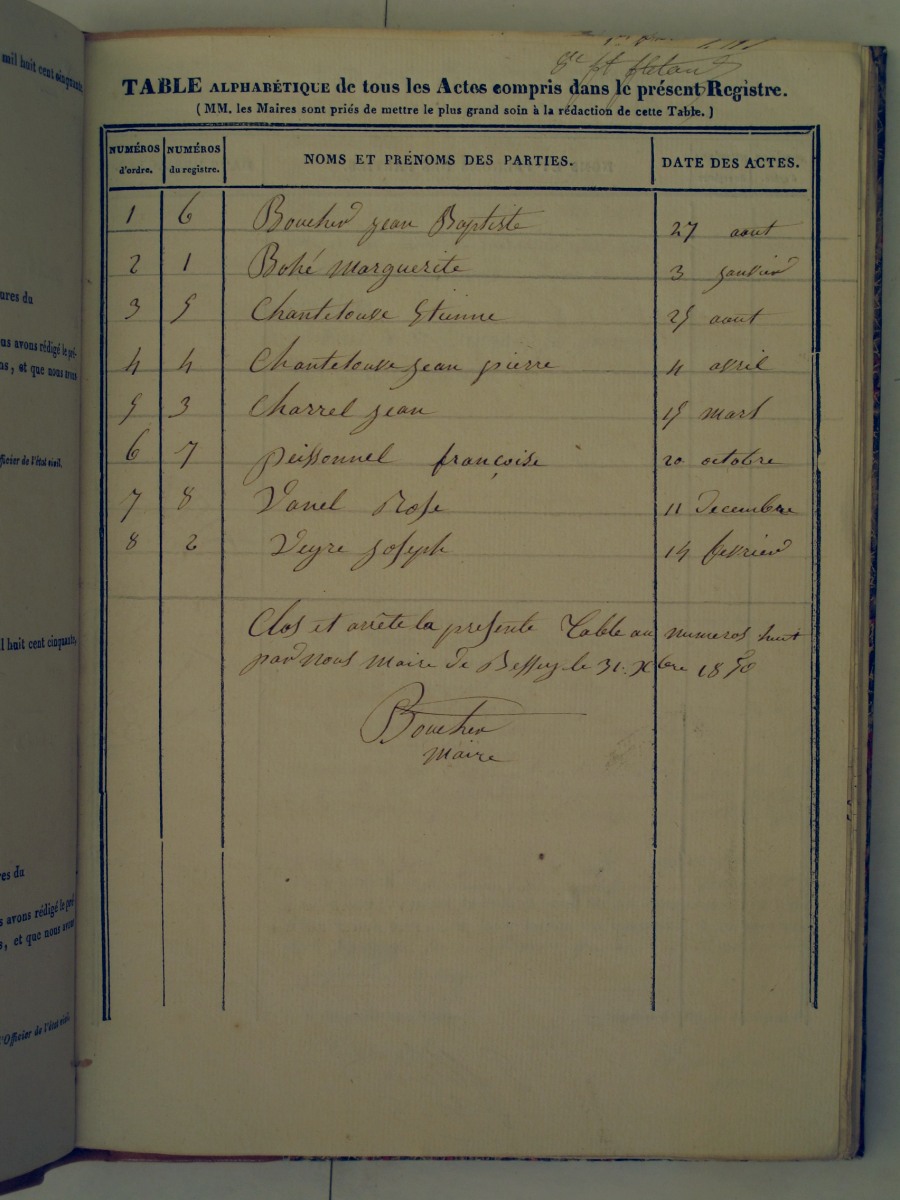 mil huit cent cinquante
TABLE ALPHABÉTIQUE de tous les Actes compris dans le présent Registre.
( MM. les Maires sont priés de mettre le plus grand soin à la rédaction de cette Table. )
NUMÉROS d'ordre. NUMÉROS du registre. NOMS ET PRÉNOMS DES PARTIES. DATE DES ACTES.
1 6 Boucher jean Baptiste 27 aout
2 1 Bohé Marguerite 3 janvier
3 5 Chantelouve Etienne 25 aout
4 4 Chantelouve jean pierre 4 avril
5 3 Charrel jean 15 mars
6 7 peissonnel françoise 20 octobre
7 8 Vanel Rose 11 Decembre
8 2 Veyre joseph 14 fevrier
Clos et arrête la presente Table au numeros huit
par nous Maire de Bessey le 31. Xbre 1850
Boucher
Maire
ures du
us avons rédigé le pré-
ns, et que nous avons
fficier de l'état civil.
il huit cent cinquante,
res du
s avons rédigé le pré-
s, et que nous avons
l'Officier de l'état civil.